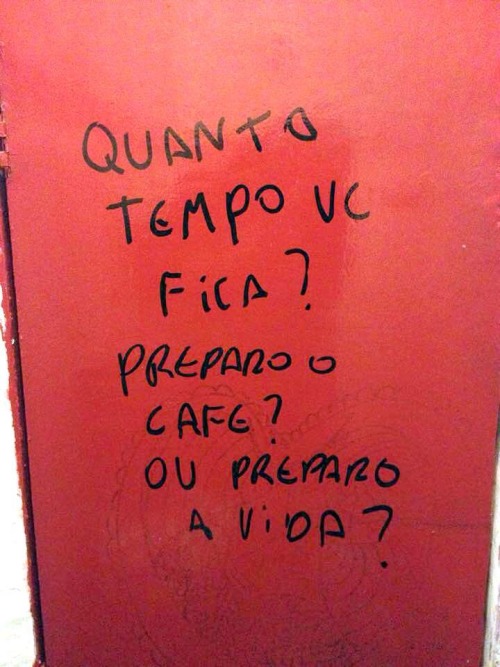 QUANTO
TEMPO VC
FiCA?
PREPARO O
CAFE?
OU PREPARO
A ViDA?